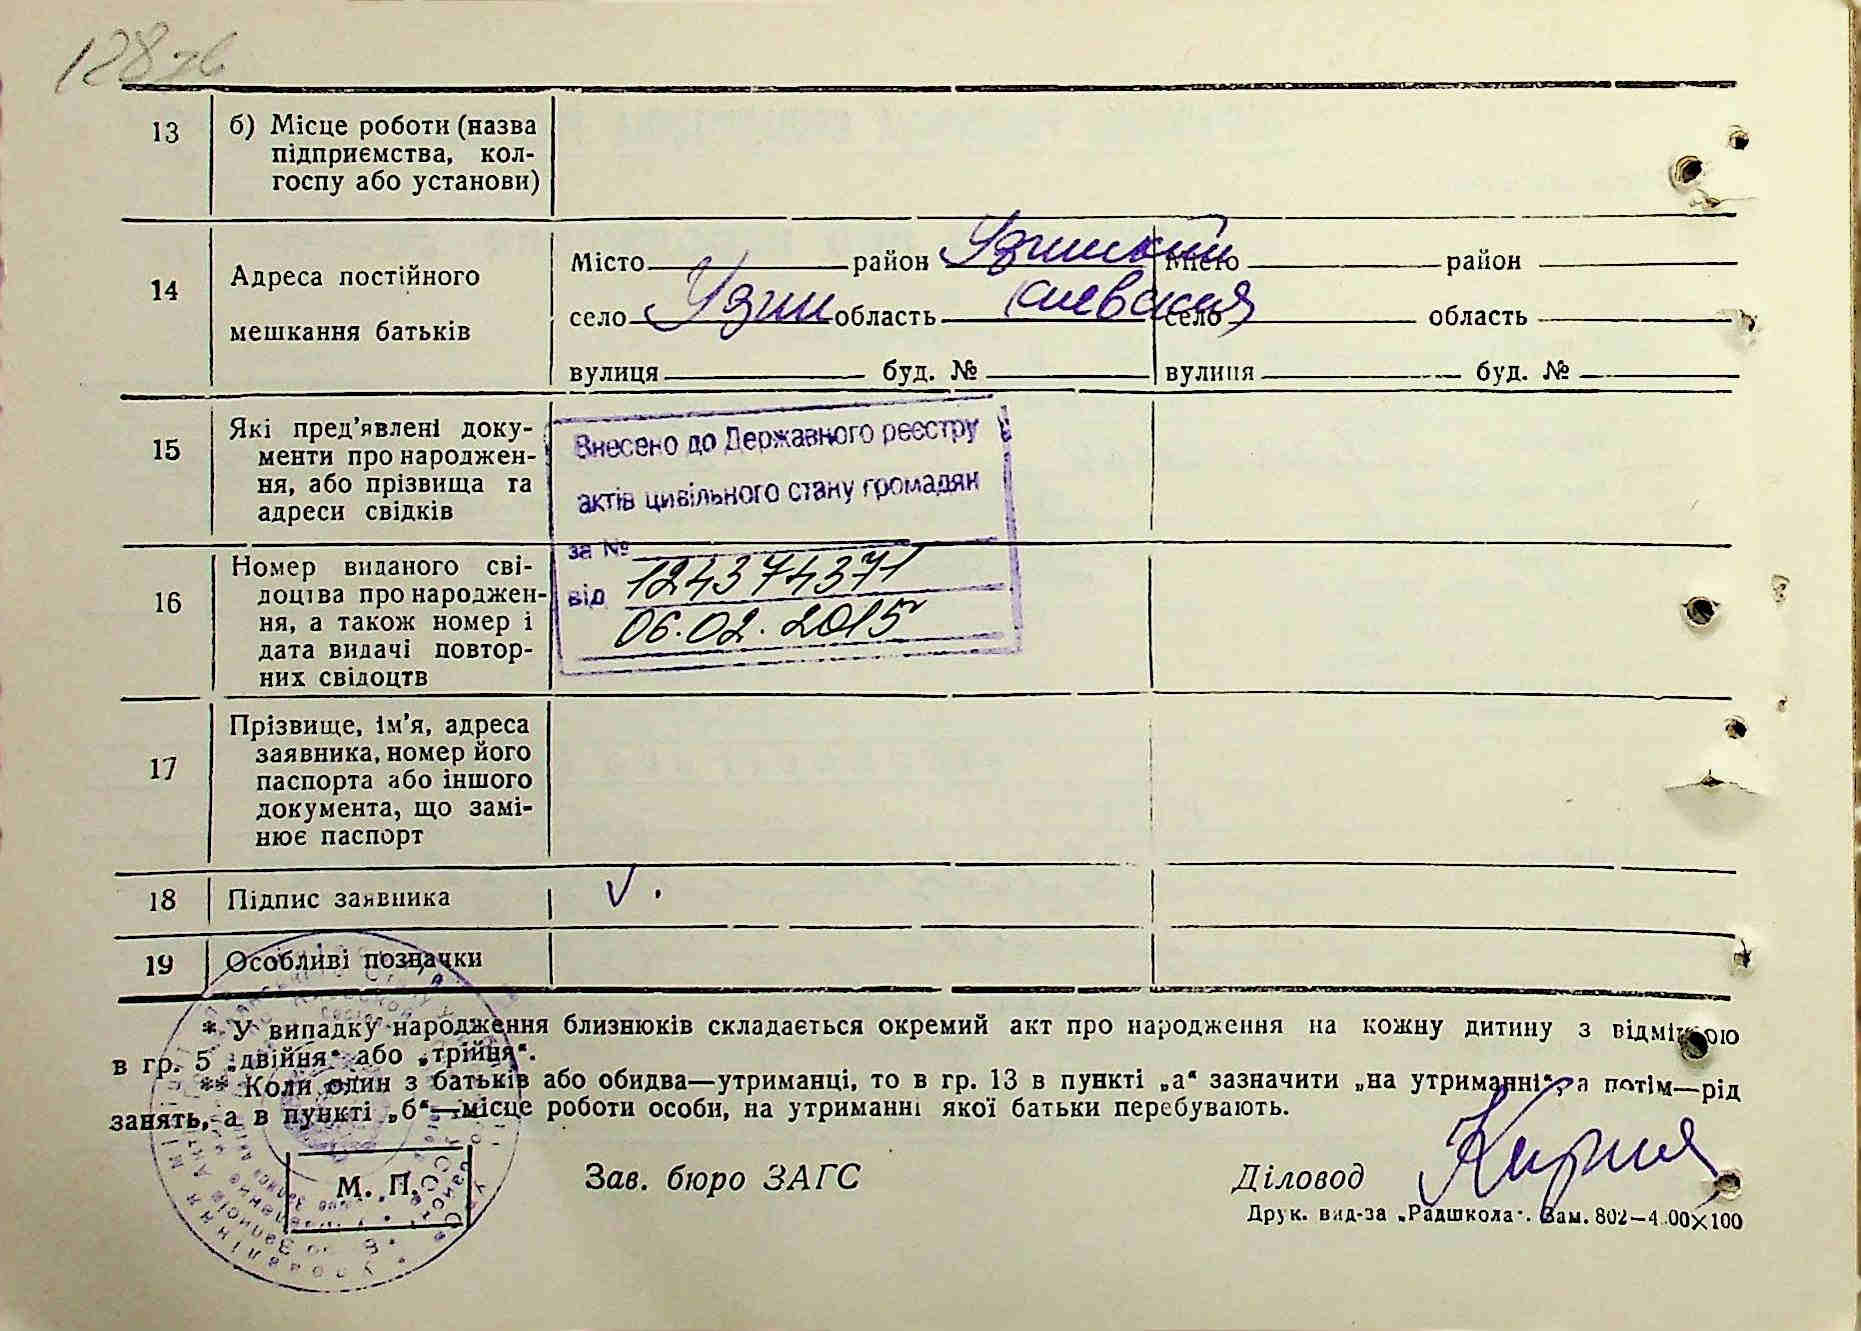 128 зв
13 б) Місце роботи (назва
підприємства, кол-
госпу або установи)
14 Адреса постійного
мешкання батьків
Місто район Узинский Місто район
село Узин область Киевская село область
вулиця буд. № вулиця буд. №
15 Які пред'явлені доку-
менти про народжен-
ня, або прізвища та
адреси свідків
Внесено до Державного реєстру
актів цивільного стану громадян
за № 124374371
від 06.02.2015
16 Номер виданого сві-
доцтва про народжен-
ня, а також номер і
дата видачі повтор-
них свідоцтв
17 Прізвище, ім'я, адреса
заявника, номер його
паспорта або іншого
документа, що замі-
нює паспорт
18 Підпис заявника V.
19 Особливі позначки
* У випадку народження близнюків складається окремий акт про народження на кожну дитину з відміткою
в гр. 5 „двійня“ або „трійня“.
** Коли один з батьків або обидва—утриманці, то в гр. 13 в пункті „а“ зазначити „на утриманні“, а потім—рід
занять, а в пункті „б“—місце роботи особи, на утриманні якої батьки перебувають.
М. П.
Зав. бюро ЗАГС Діловод
Друк. вид-ва „Радшкола“. Зам. 802—4.00×100